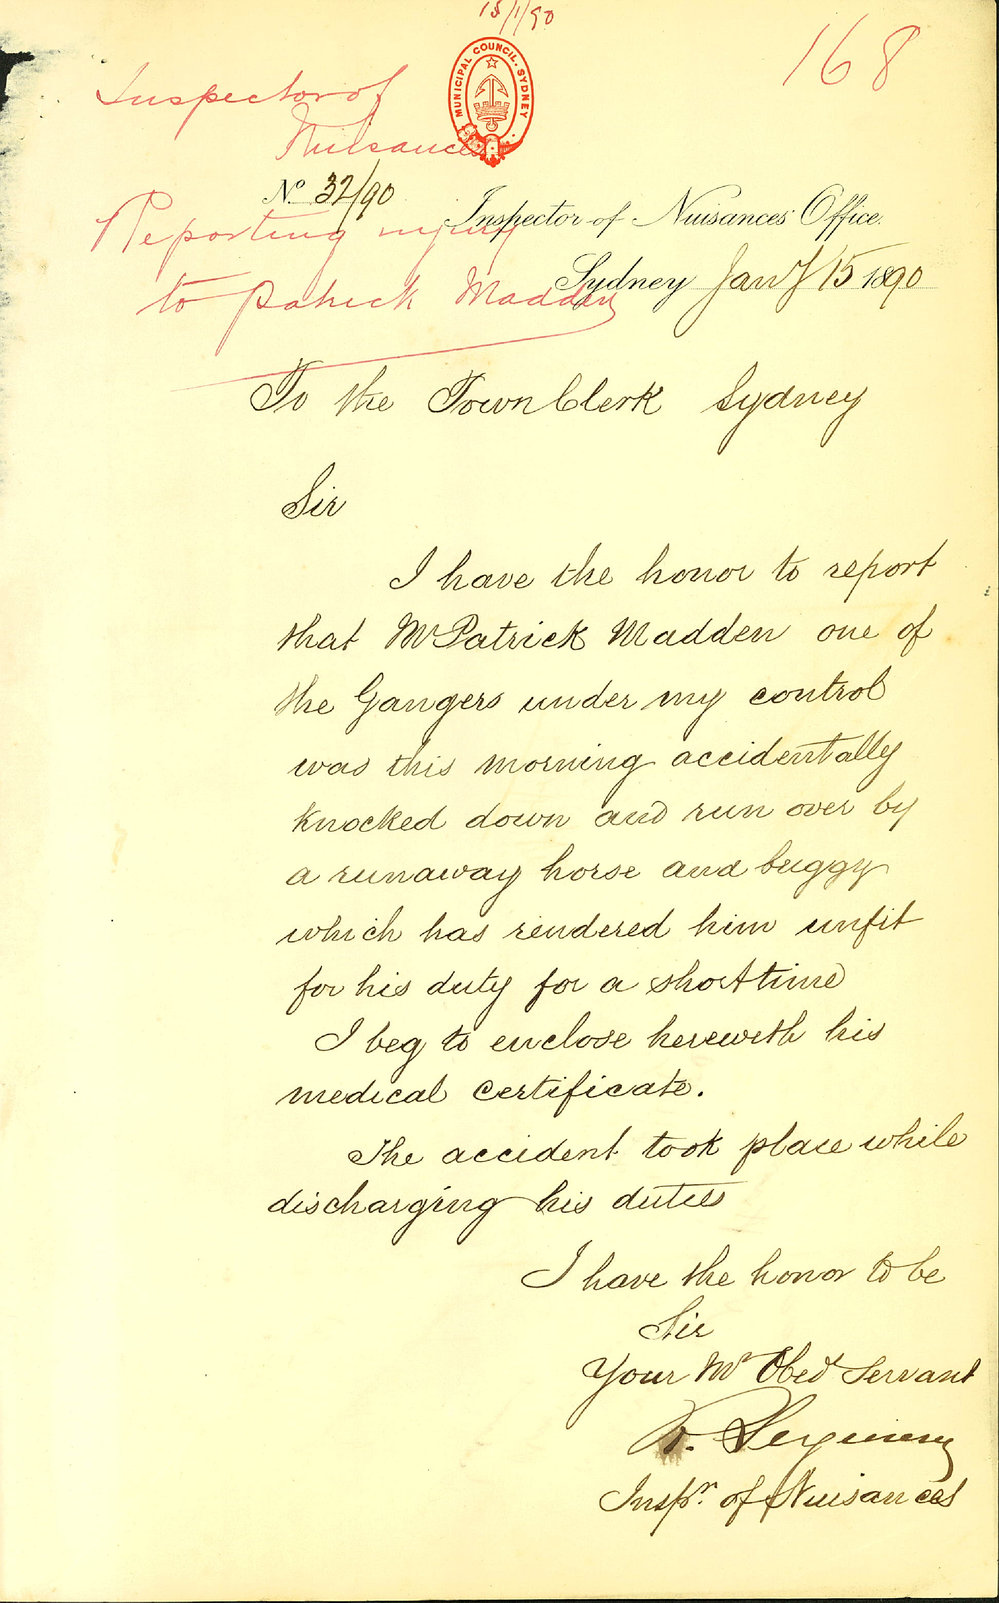 15/1/90
168
Inspector of
Nuisances
Reporting injury
to Patrick Madden
MUNICIPAL COUNCIL. SYDNEY
No. 32/90
Inspector of Nuisances' Office.
Sydney Jany 15 1890
To the Town Clerk Sydney
Sir
I have the honor to report
that Mr Patrick Madden one of
the Gangers under my control
was this morning accidentally
knocked down and run over by
a runaway horse and buggy
which has rendered him unfit
for his duty for a short time
I beg to enclose herewith his
medical certificate.
The accident took place while
discharging his duties
I have the honor to be
Sir
Your Mt Obed Servant
Inspr. of Nuisances